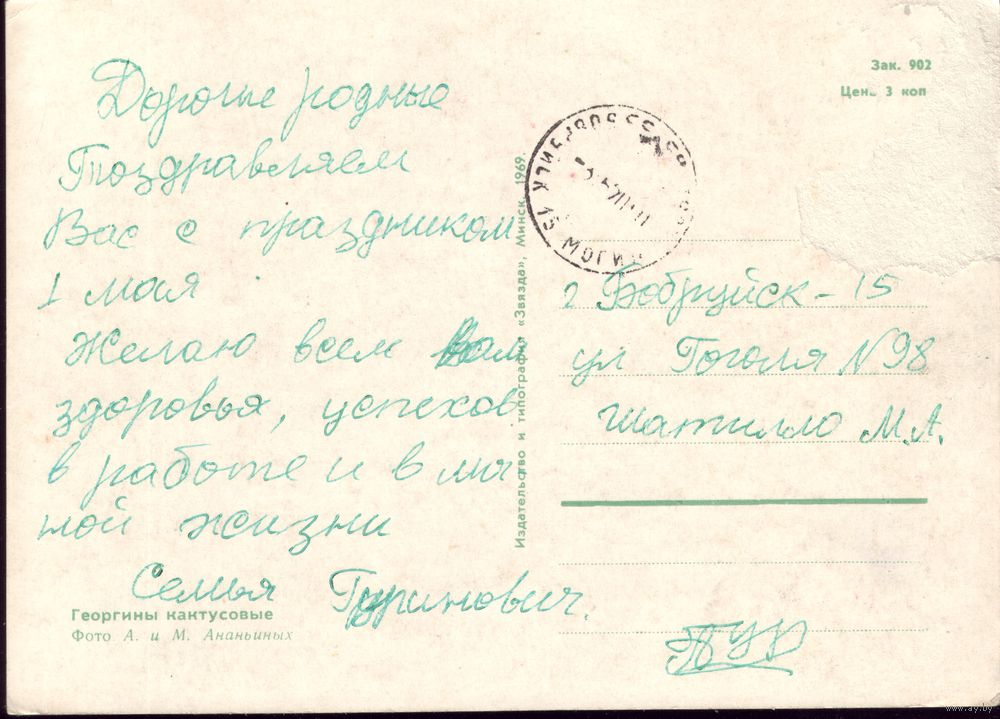 Дорогие родные
Поздравляем
Вас с праздником
1 мая
Желаю всем Вам
здоровья, успехов
в работе и в лич
ной жизни
Семья Гуринович.
Георгины кактусовые
Фото А. и М. Ананьиных
Издательство и типография «Звязда», Минск, 1969.
Зак. 902
Цена 3 коп
г Бобруйск - 15
ул Гоголя N 98
Шатилло М.А.
www.ay.by